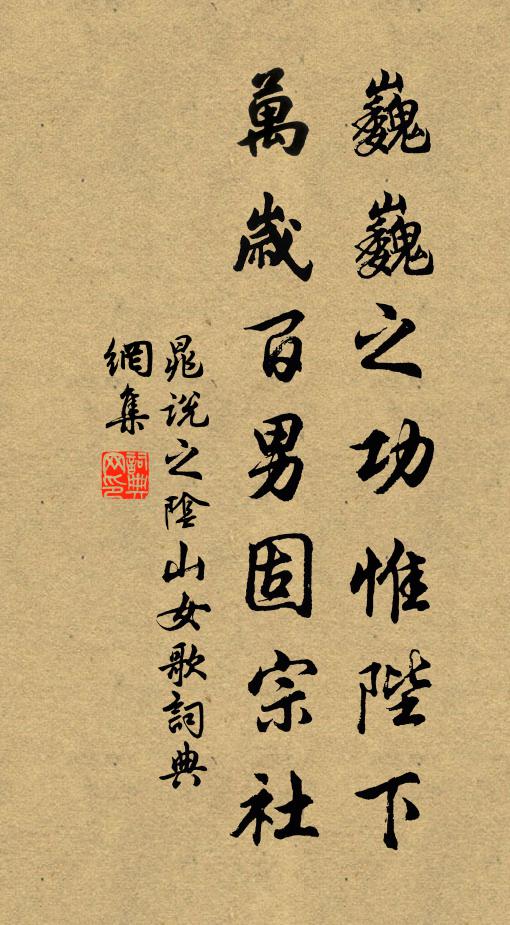 巍巍之功惟陛下
萬歲百男固宗社
晁說之陰山女歌詞典
網集
詞典
网印